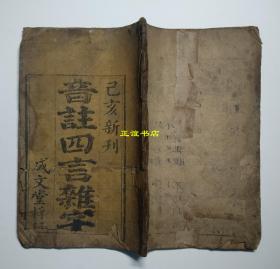 己亥新刊
音註四言雜字
成文堂梓行
正谊书店